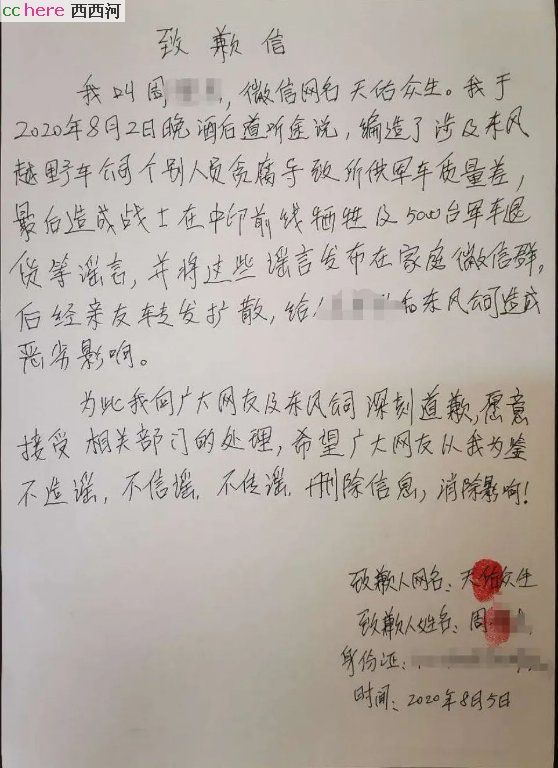 cchere 西西河
致歉信
我叫周，微信网名天佑众生。我于
2020年8月2日晚酒后道听途说，编造了涉及东风
越野车公司个别人员贪腐导致所供军车质量差，
最后造成战士在中印前线牺牲及5000台军车退
货等谣言，并将这些谣言发布在家庭微信群，
后经亲友转发扩散，给和东风公司造成
恶劣影响。
为此我向广大网友及东风公司深刻道歉，愿意
接受相关部门的处理，希望广大网友以我为鉴
不造谣，不信谣，不传谣，删除信息，消除影响！
致歉人网名：天佑众生
致歉人姓名：周
身份证：
时间：2020年8月5日